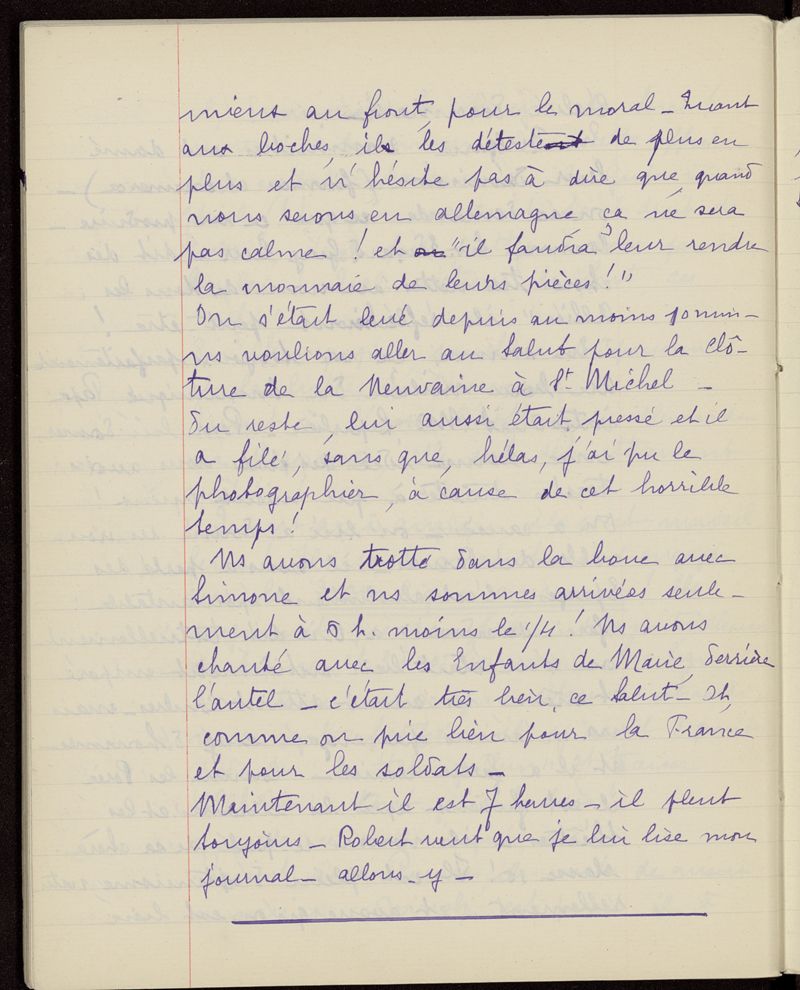 mieux au front, pour le moral _ Quant
aux boches, il les déteste de plus en
plus et n'hésite pas à dire que, quand
nous serons en allemagne, ça ne sera
pas calme ! et "il faudra leur rendre
la monnaie de leurs pièces !"
On s'était levé depuis au moins 10 min _
ns voulions aller au Salut pour la clô-
ture de la Neuvaine à St Michel _
Du reste, lui aussi était pressé et il
a filé, sans que, hélas, j'ai pu le
photographier, à cause de cet horrible
temps !
Ns avons trotté dans la boue avec
Simone et ns sommes arrivées seule-
ment à 5 h. moins le 1/4 ! Ns avons
chanté avec les Enfants de Marie, derrière
l'autel _ c'était très bien, ce Salut _ Et,
comme on prie bien pour la France
et pour les soldats _
Maintenant il est 7 heures _ il pleut
toujours _ Robert veut que je lui lise mon
journal _ allons-y _